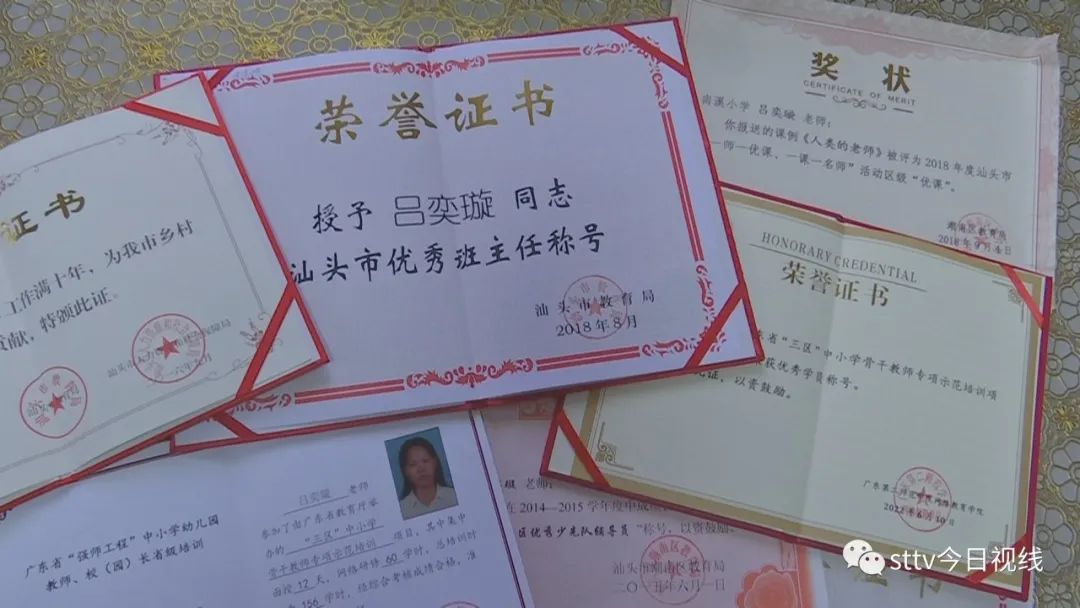 证书
工作满十年，为我市乡村
献，特颁此证。
荣誉证书
授予 吕奕璇 同志
汕头市优秀班主任称号
汕头市教育局
2018年8月
奖状
CERTIFICATE OF MERIT
南溪小学 吕奕璇 老师：
你报送的课例《人类的老师》被评为2018年度汕头市
一师一优课、一课一名师”活动区级“优课”。
潮南区教育局
2018年9月4日
HONORARY CREDENTIAL
荣誉证书
东省“三区”中小学骨干教师专项示范培训项
获优秀学员称号。
证，以资鼓励。
广东第二师范学院网络教育学院
广东省“强师工程”中小学幼儿园
教师、校（园）长省级培训
吕奕璇 老师
参加了由广东省教育厅举
办的 “三区”中小学
骨干教师专项示范培训 项目，其中集中
面授 12 天，网络研修 60 学时，总培训时
156 学时，经综合考核成绩合格，准
璇 老师：
在2014—2015学年度中
区优秀少先队辅导员”称号，以资鼓励
汕头市潮南区教育局
二〇一五年六月一日
sttv今日视线